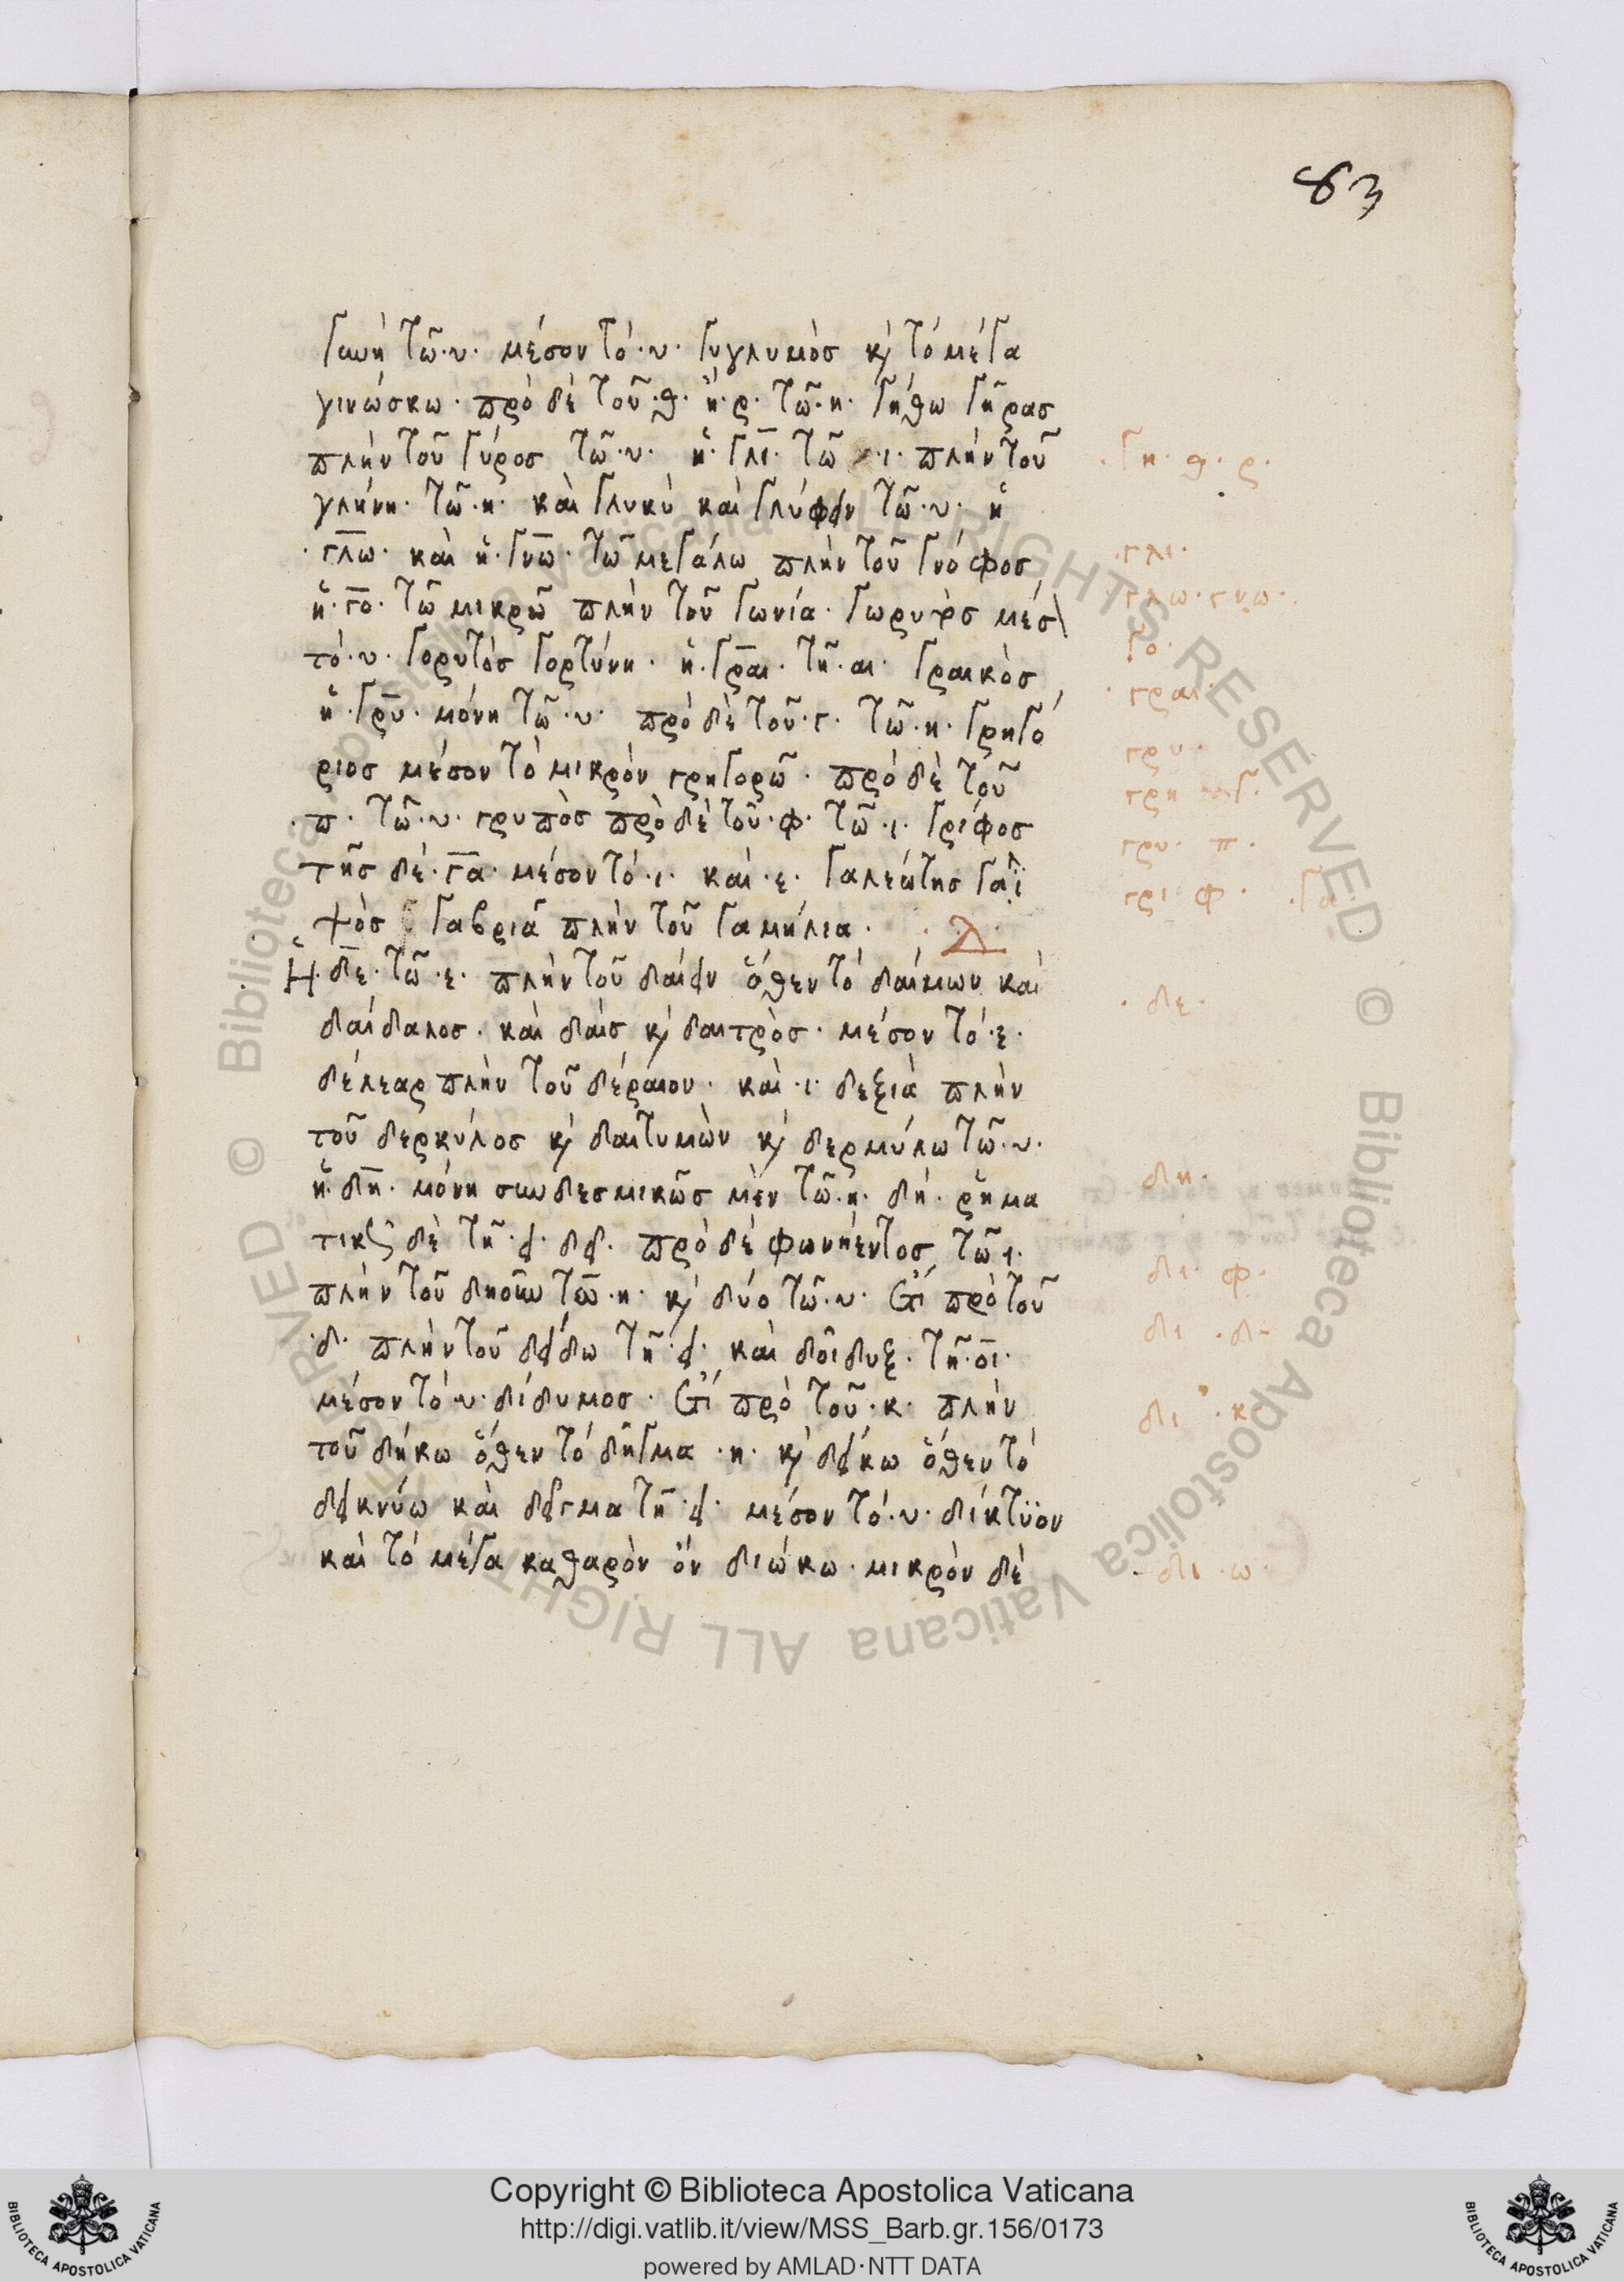 83
γωνὴ τῶ·υ· μέσον τὸ·υ· γυγλυμὸσ κ̀ τὸ μέγα
γινώσκω· πρὸ δὲ τοῦ·θ· ἢ·ρ· τῶ·η· γήθω γῆρασ
πλὴν τοῦ γύροσ τῶ·υ· ἡ·γλι· τῶ·ι· πλὴν τοῦ
γλήνη· τῶ·η· καὶ γλυκὺ καὶ γλύφειν τῶ·υ· ἡ
·γλω· καὶ ἡ·γνω· τῶ μεγάλω πλὴν τοῦ γνόφοσ
ἡ·γο· τῶ μικρῶ πλὴν τοῦ γωνία· μέσ
τὸ·υ· γορυτὸσ γορτύνη· ἡ·γραι· τῆ·αι· γραικὸσ
ἡ·γρυ· μόνη τῶ·υ· πρὸ δὲ τοῦ·γ· τῶ·η· γρηγό
ριοσ μέσον τὸ μικρὸν γρηγορῶ· πρὸ δὲ τοῦ
·π· τῶ·υ· γρυπὸσ πρὸ δὲ τοῦ·φ· τῶ·ι· γρίφοσ
τῆσ δὲ·γα· μέσον τὸ·ι· καὶ·ε· γαλεώτησ
γαβριὰ πλὴν τοῦ γαμήλια· ·Δ·
Ἡ·δε· τῶ·ε· πλὴν τοῦ δαίειν ὅθεν τὸ δαίμων καὶ
δαίδαλοσ· καὶ δαὶσ κ̀ δαιτρὸσ· μέσον τὸ·ε·
δέλεαρ πλὴν τοῦ δέραιον· καὶ·ι· δεξιὰ πλὴν
τοῦ δερκύλοσ κ̀ δαιτυμὼν κ̀ δερμύλω τῶ·υ·
ἡ·δη· μόνη συνδεσμικῶσ μὲν τῶ·η· δή· ῥημα
τικῶς δὲ τῆ·ει· δει· πρὸ δὲ φωνήεντοσ τῶ ι·
πλὴν τοῦ δηόω τῶ·η· κ̀ δύο τῶ·υ· ἔτι πρὸ τοῦ
·δ· πλὴν τοῦ δείδω τῆ·ει· καὶ δοίδυξ· τῆ·οι·
μέσον τὸ·υ· δίδυμοσ· ἔτι πρὸ τοῦ·κ· πλὴν
τοῦ δήκω ὅθεν τὸ δῆγμα·η· κ̀ δείκω ὅθεν τὸ
δεικνύω καὶ δεῖγμα τῆ·ει· μέσον τὸ·υ· δίκτϋον
καὶ τὸ μέγα καθαρὸν ὂν διώκω· μικρὸν δὲ
·γη·θ·ρ·
·γλι·
·γλω·γνω·
γο·
·γραι·
γρυ·
γρη γ·
γρυ· π·
γρι φ· ·γα·
·δε·
δη·
δι· φ·
δι ·δ-
δι ·κ
·δι·ω·
Copyright © Biblioteca Apostolica Vaticana
http://digi.vatlib.it/view/MSS_Barb.gr.156/0173
powered by AMLAD·NTT DATA